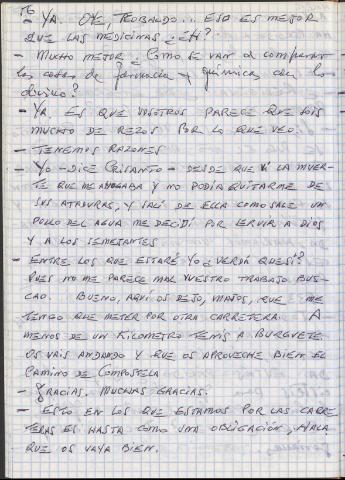 76
- YA. OYE, TEOBALDO... ESO ES MEJOR
QUE LAS MEDICINAS ¿EH?
- MUCHO MEJOR ¿Como se van a comparar
las cosas de farmacia y química con lo
divino?
- YA. ES QUE VOSOTROS PARECE QUE SOIS
MUCHO DE REZOS POR LO QUE VEO.
- TENEMOS RAZONES
- YO - DICE CRISANTO - DESDE QUE VI LA MUER-
TE QUE ME AHOGABA Y NO PODIA QUITARME DE
SUS ATADURAS, Y SALÍ DE ELLA COMO SALE UN
POLLO DEL AGUA ME DECIDÍ POR SERVIR A DIOS
Y A LOS SEMEJANTES.
- ENTRE LOS QUE ESTARÉ YO ¿VERDÁ QUE SÍ?
PUES NO ME PARECE MAL VUESTRO TRABAJO BUS-
CAO. BUENO, AQUÍ OS DEJO, MAJOS, QUE ME
TENGO QUE METER POR OTRA CARRETERA. A
MENOS DE UN KILOMETRO TENÍS A BURGUETE.
OS VAIS ANDANDO Y QUE OS APROVECHE BIEN EL
CAMINO DE COMPOSTELA
- GRACIAS. MUCHAS GRACIAS.
- ESTO EN LOS QUE ESTAMOS POR LAS CARRE
TERAS ES HASTA COMO UNA OBLIGACIÓN, HALA
QUE OS VAYA BIEN.